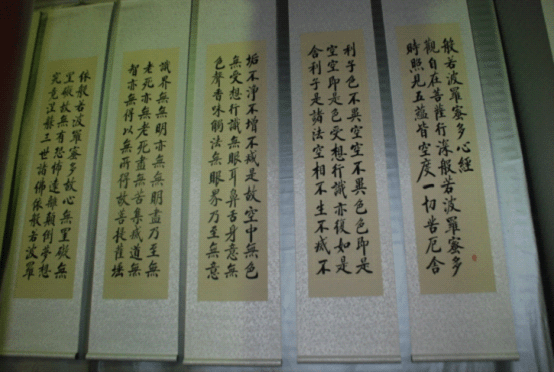 般若波羅蜜多心經
觀自在菩薩行深般若波羅蜜多
時照見五蘊皆空度一切苦厄舍
利子色不異空空不異色色即是
空空即是色受想行識亦復如是
舍利子是諸法空相不生不滅不
垢不淨不增不減是故空中無色
無受想行識無眼耳鼻舌身意無
色聲香味觸法無眼界乃至無意
識界無無明亦無無明盡乃至無
老死亦無老死盡無苦集滅道無
智亦無得以無所得故菩提薩埵
依般若波羅蜜多故心無罣礙無
罣礙故無有恐怖遠離顛倒夢想
究竟涅槃三世諸佛依般若波羅